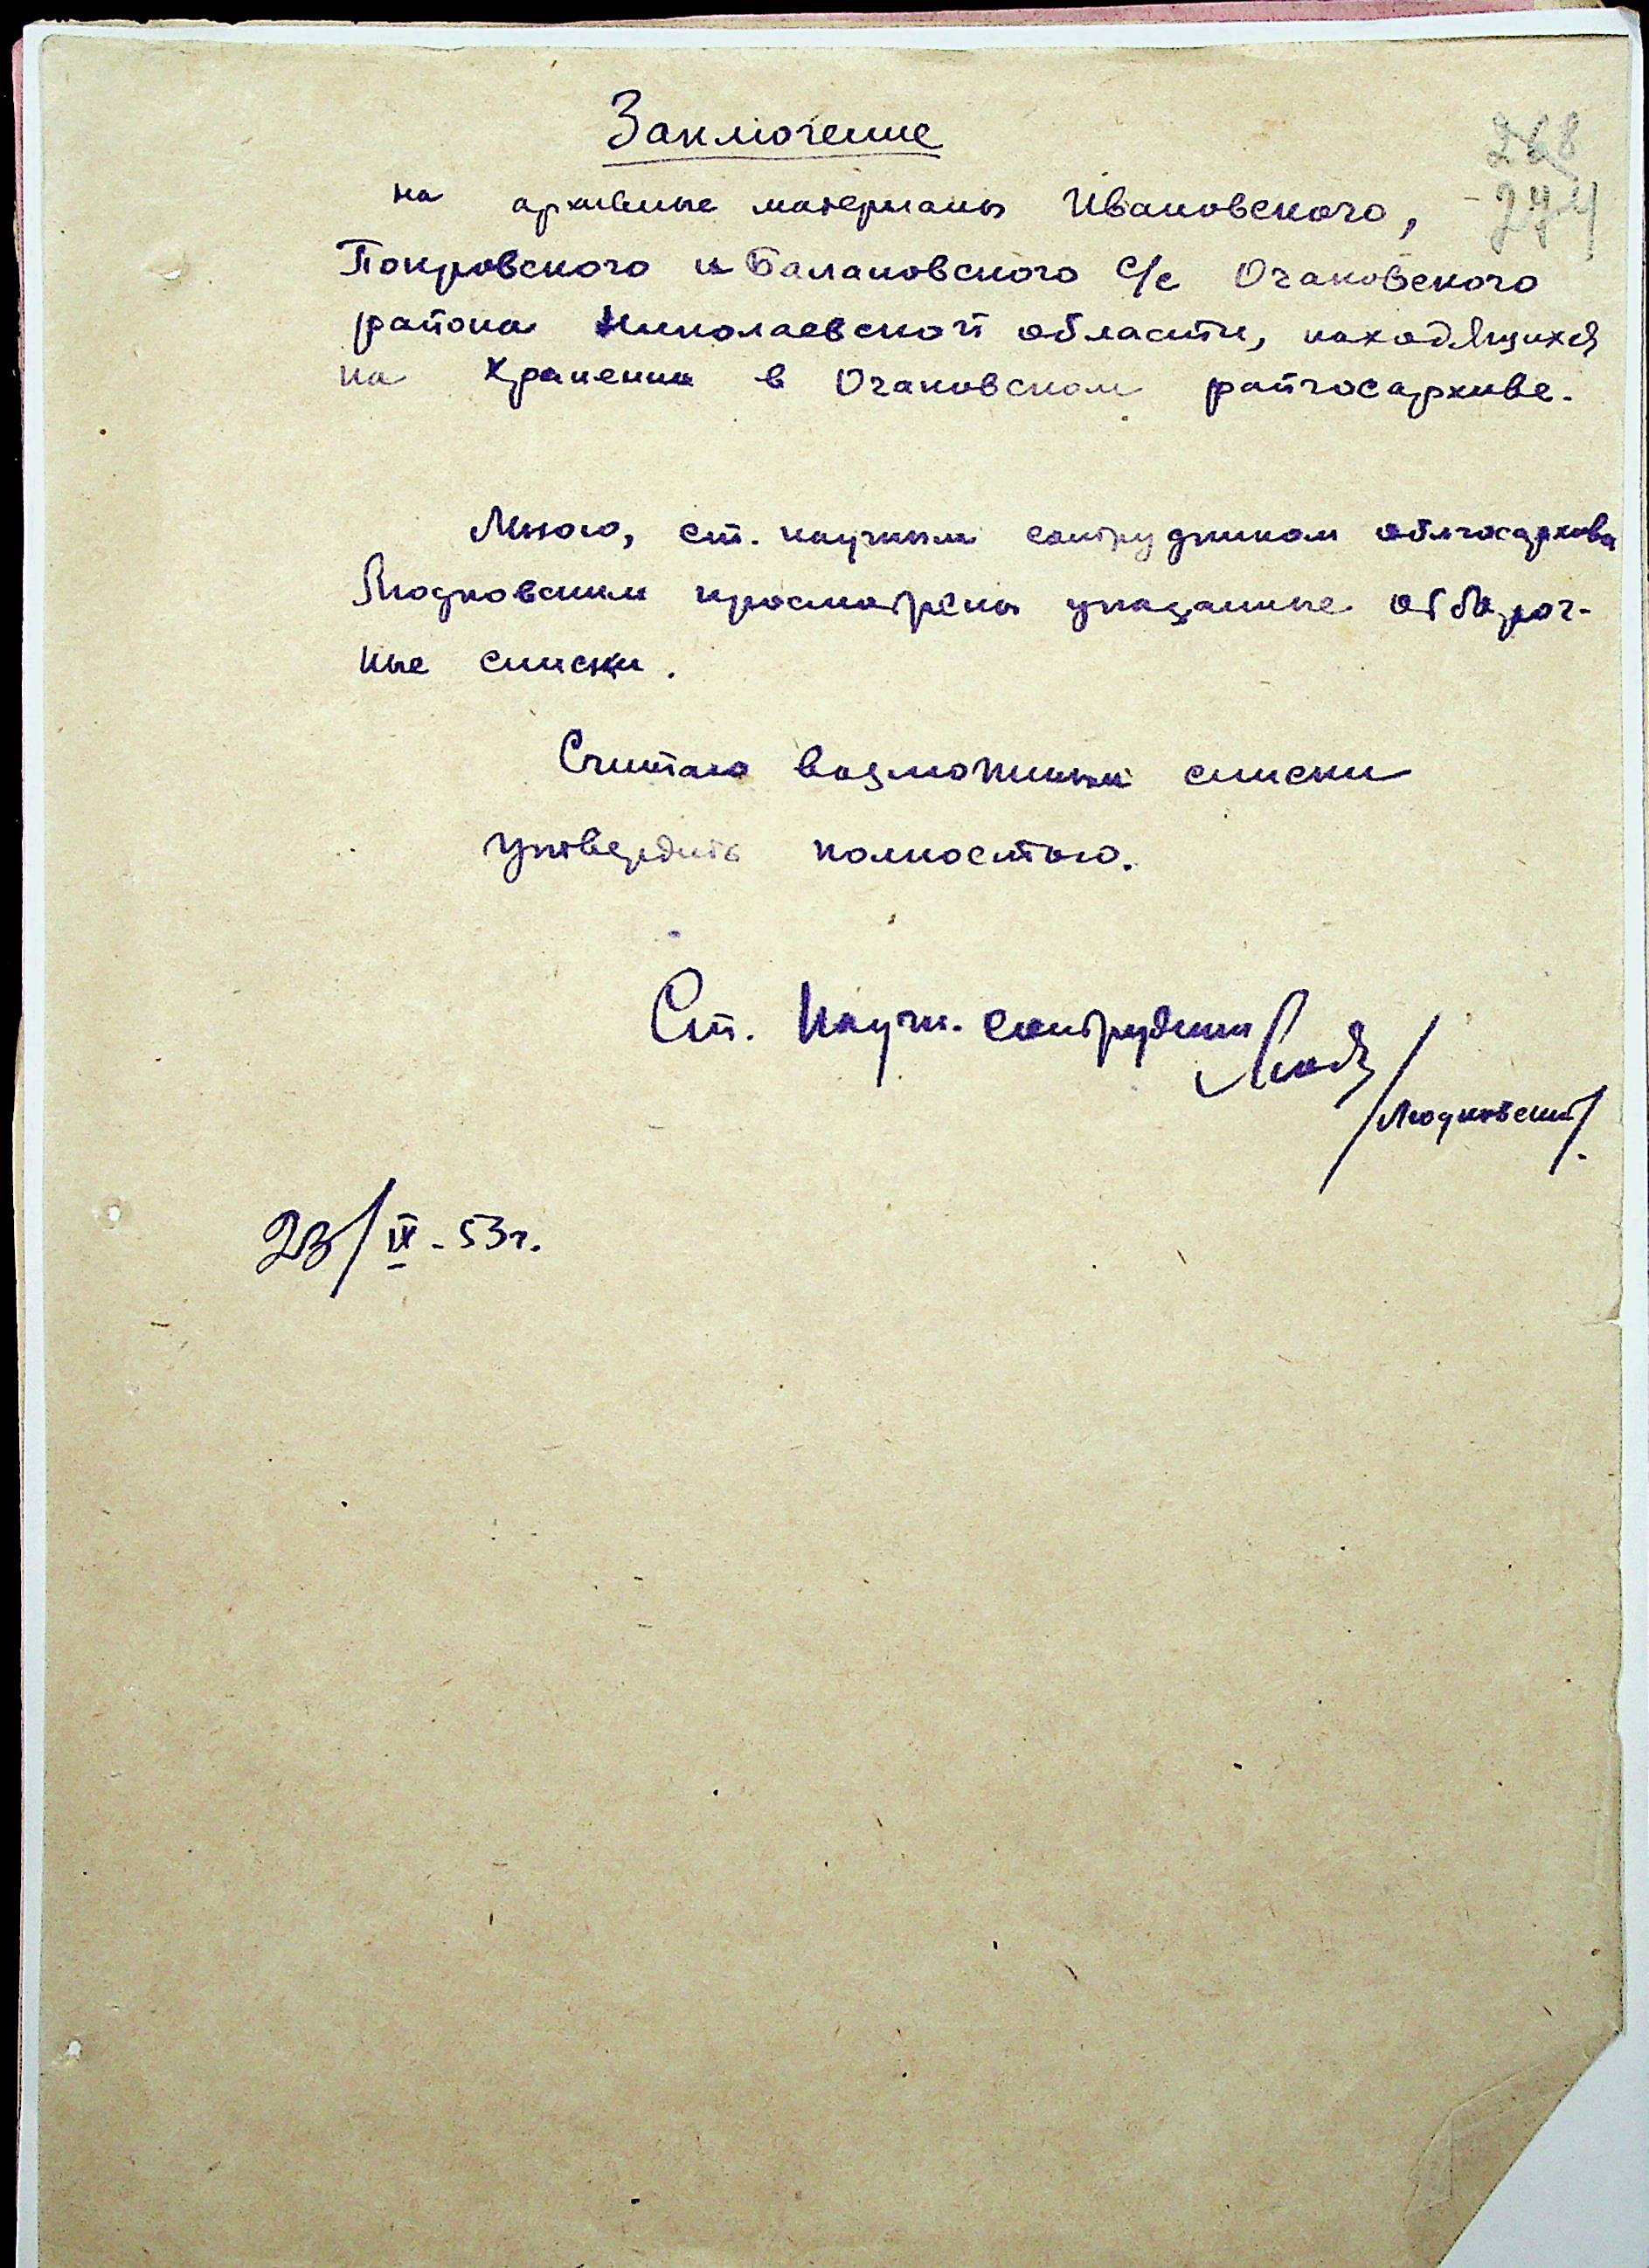 Заключение
268
на архивные материалы Ивановского,
274
Покровского и Балановского с/с Очаковского
района Николаевской области, находящихся
на хранении в Очаковском райгосархиве.
Мною, ст. научным сотрудником облгосархива
Людковским просмотрены указанные отбороч-
ные списки.
Считаю возможным списки
утвердить полностью.
Ст. научн. сотрудник
/Людковский/.
23/IX-53г.